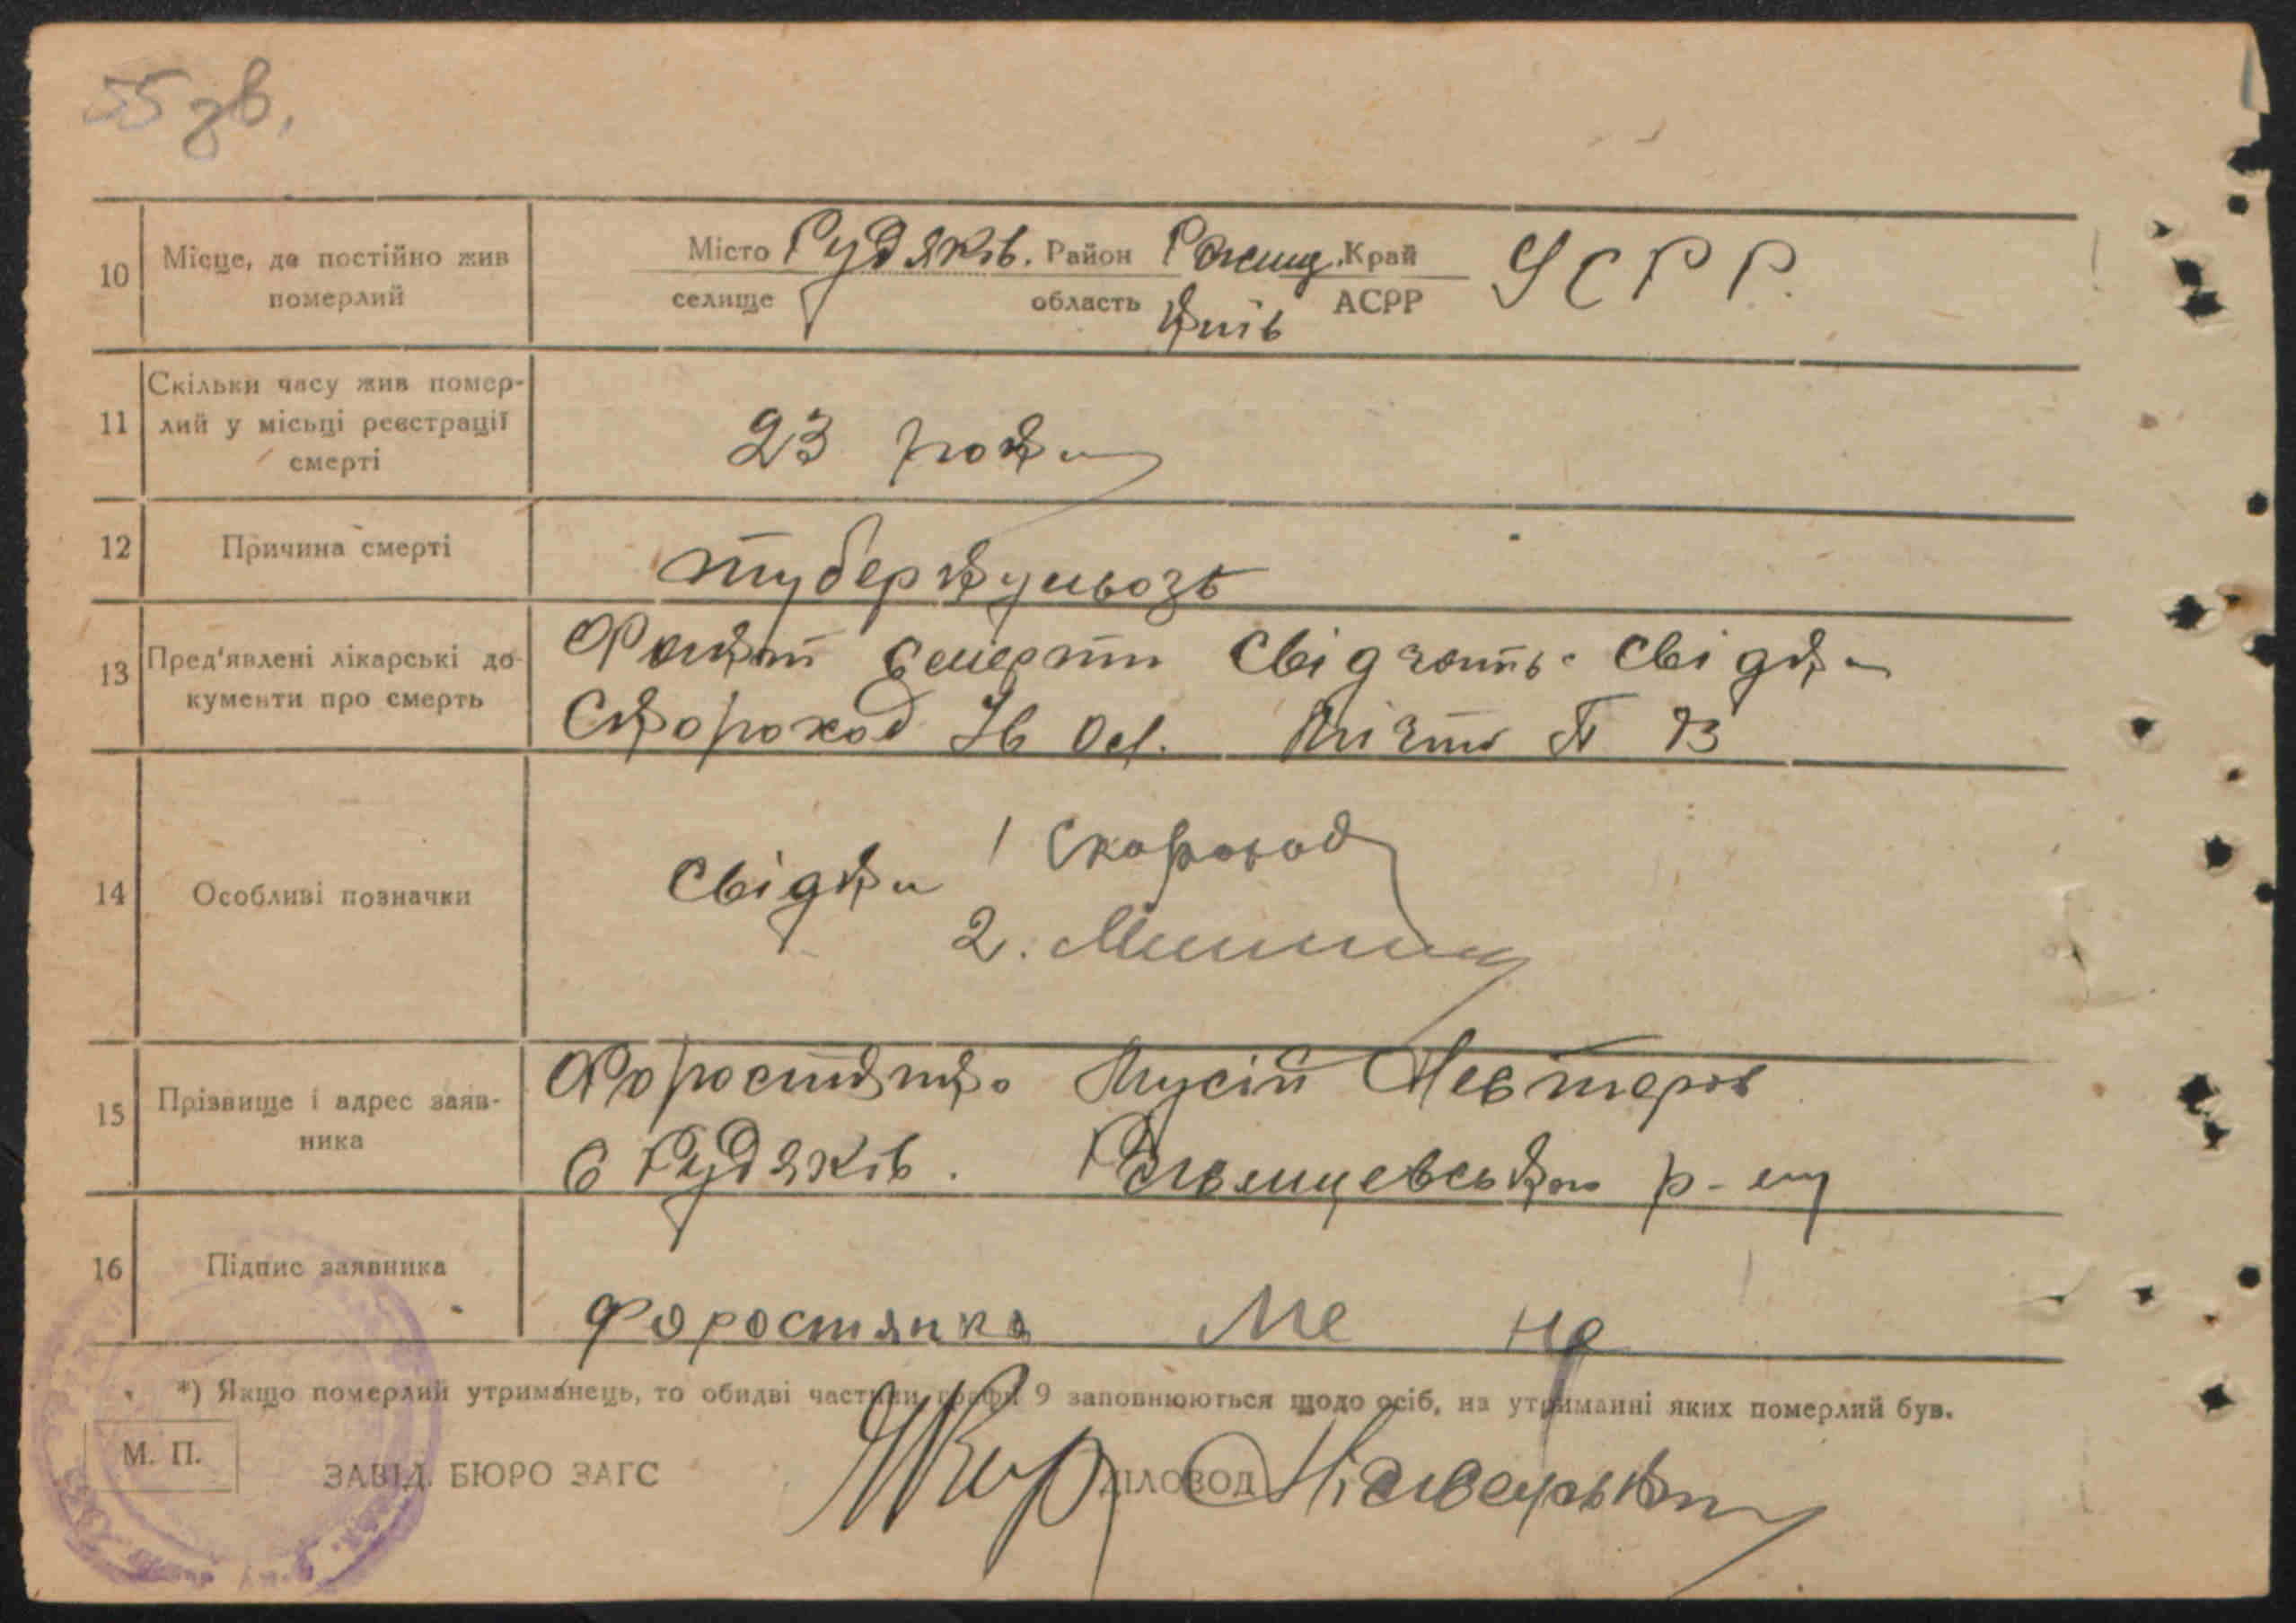 55 зв.
10 Місце, де постійно жив померлий
Місто селище Рудяків. Район область Ржищ. Київ Край АСРР УСРР.
11 Скільки часу жив помер-
лий у місьці реєстрації
смерті
23 роки
12 Причина смерті
туберкульозъ
13 Пред'явлені лікарські до-
кументи про смерть
Факт смерти свідчать свідки
Скороход Ів Ос.
14 Особливі позначки
Свідки 1 Скороход
2.
15 Прізвище і адрес заяв-
ника
Форостянко Мусій Невтеров
с Рудяків. р-ну
16 Підпис заявника
Форостянка Ме не
*) Якщо померлий утриманець, то обидві частини графи 9 заповнюються щодо осіб, на утриманні яких померлий був.
М. П.
ЗАВІД. БЮРО ЗАГС ДІЛОВОД